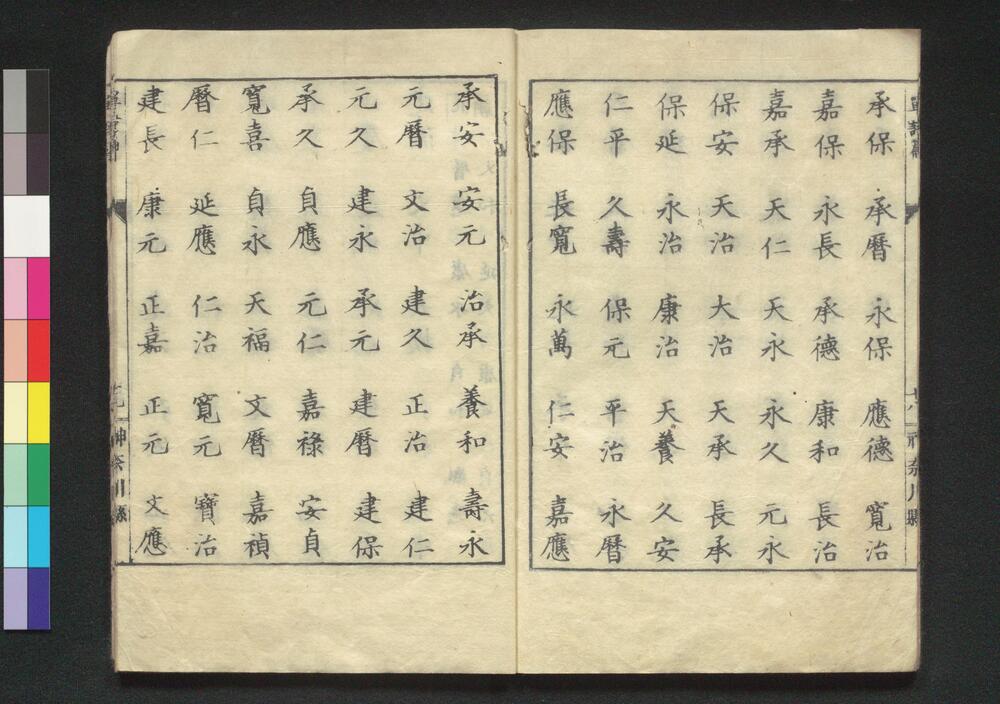 承保 承暦 永保 應德 寛治
嘉保 永長 承德 康和 長治
嘉承 天仁 天永 永久 元永
保安 天治 大治 天承 長承
保延 永治 康治 天養 久安
仁平 久壽 保元 平治 永暦
應保 長寛 永萬 仁安 嘉應
承安 安元 治承 養和 壽永
元暦 文治 建久 正治 建仁
元久 建永 承元 建暦 建保
承久 貞應 元仁 嘉祿 安貞
寛喜 貞永 天福 文暦 嘉禎
暦仁 延應 仁治 寛元 寶治
建長 康元 正嘉 正元 文應
神奈川縣